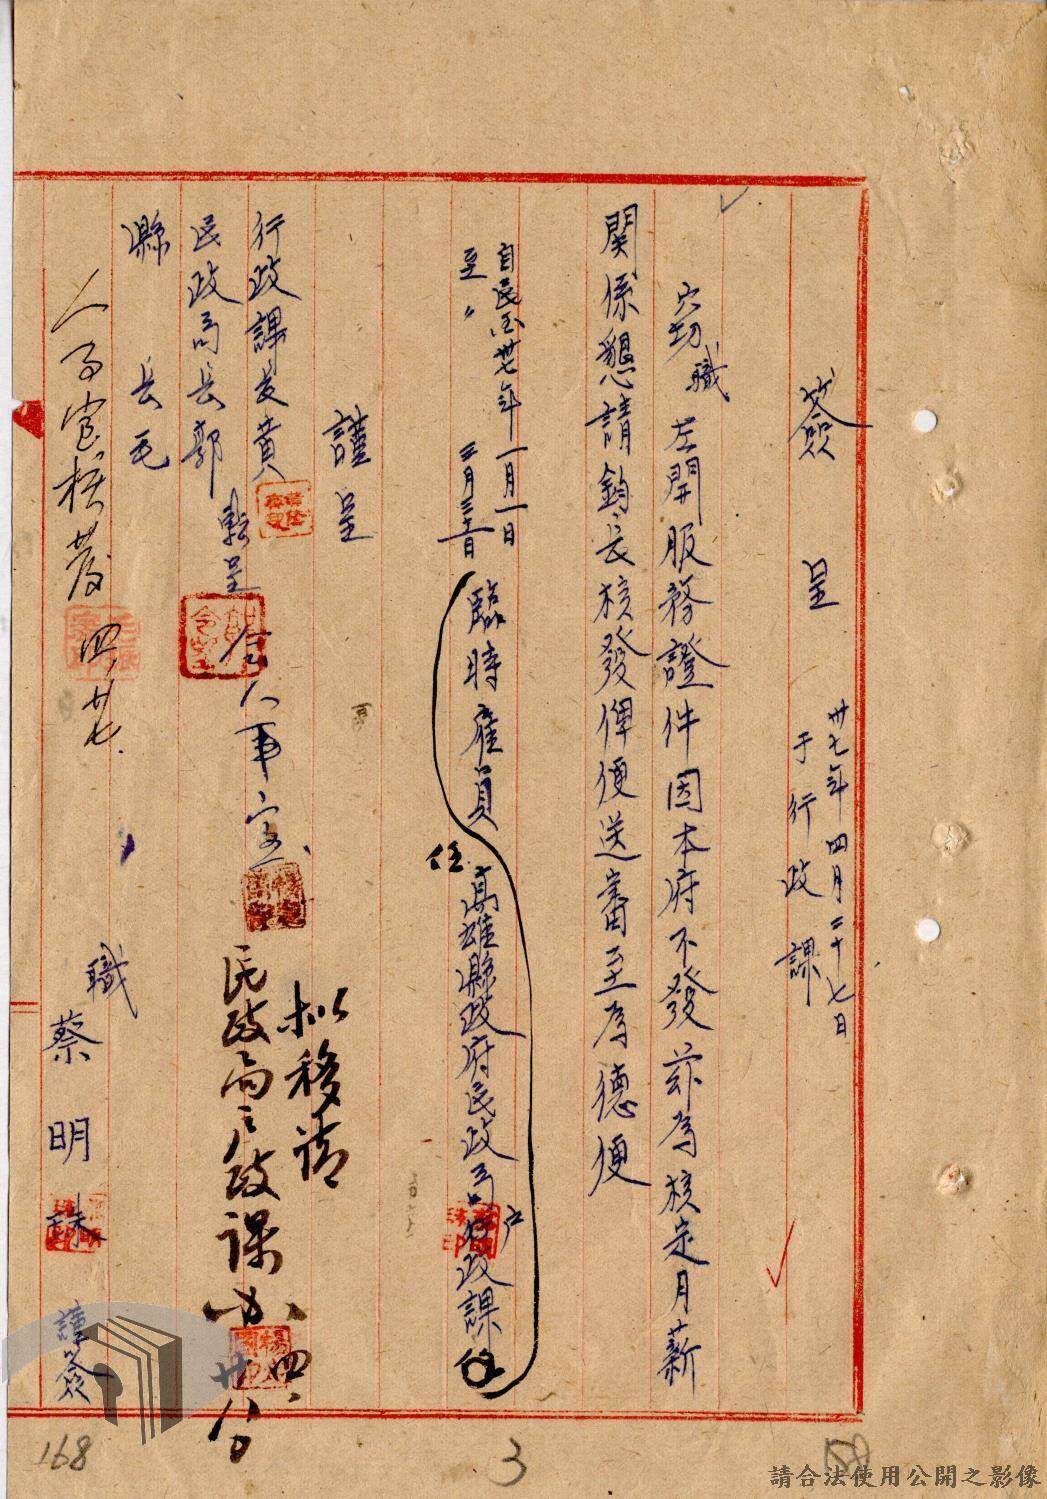 簽呈
卅七年四月二十七日
于行政課
竊職左開服務證件因本府不發茲為核定月薪
關係懇請鈞長核發俾便送審至為德便
自民国卅七年一月一日
至〃三月三十一日
臨時雇員
任
高雄縣政府民政局戶政課
謹呈
行政課長黃
民政局長郭
轉呈
縣長毛
會人事室
擬移請
民政局戶政課辦
四、廿八
人事室核發 四、廿七
職
蔡明珠
謹簽
168
3
159
請合法使用公開之影像